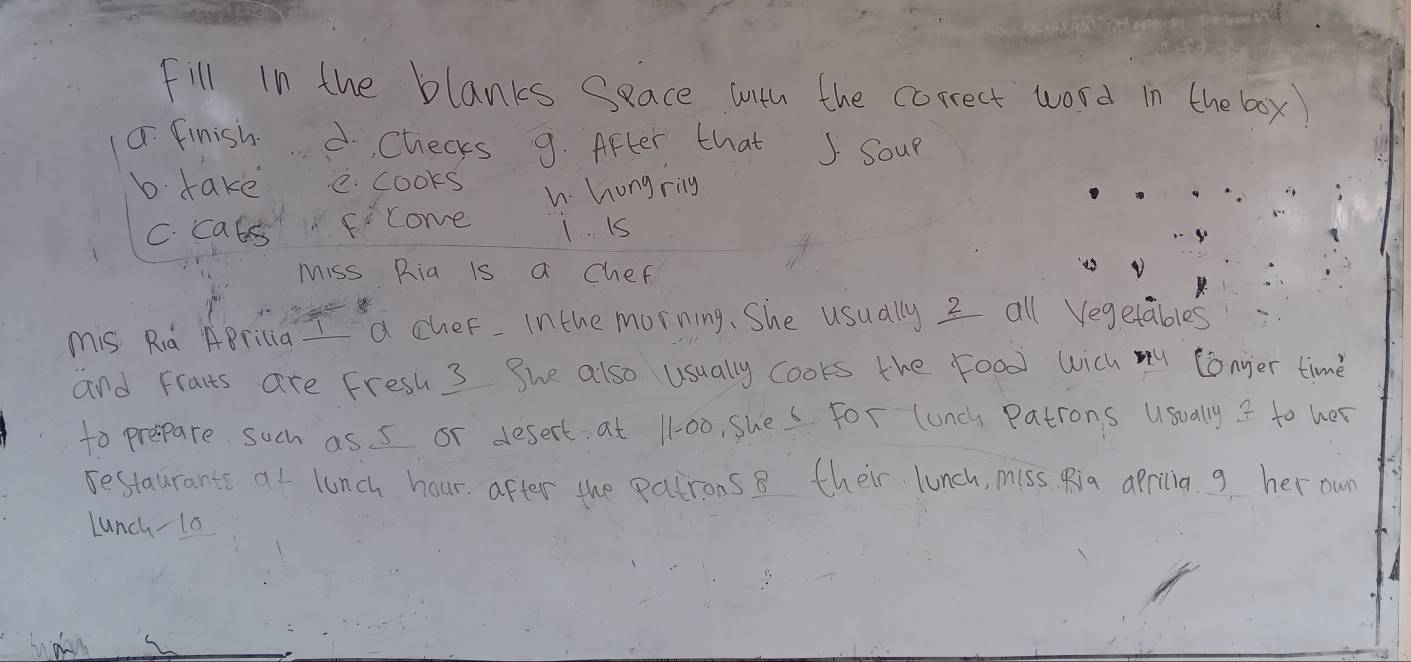 Fill in the blanks Space with the correct word in the box)
a. Finish. d. Checks g. After that J. Soup
b. take e. cooks h. hungrily
c. eats f. come i. is
miss Ria is a chef
mis Ria Aprilia 1 a chef - in the morning, She usually 2 all Vegetables
and Fraits are Fresh 3 She also usually cooks the Food wich 4 longer time
to prepare such as 5 or desert. at 11.00, she 6 For lunch Patrons usually 7 to her
restaurants at lunch hour. after the patrons 8 their lunch, miss Ria aprilia 9 her own
Lunch - 10